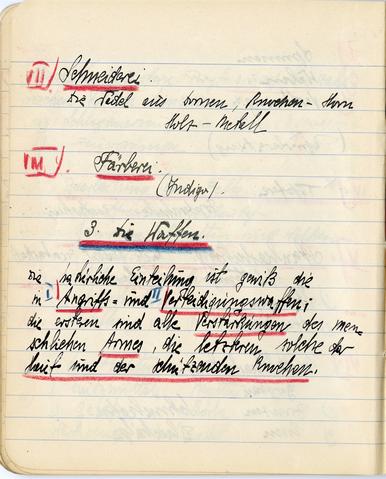 VII) Schneiderei.
Die Nadel aus Dornen, Knochen - Horn
Holz - Metall
VIII). Färberei.
(Indigo).
3. Die Waffen.
Die natürliche Einteilung ist gewiß die
in I Angriffs= und II Verteidigungswaffen;
die ersteren sind alle Verstärkungen des men
schlichen Armes, die letzteren, solche der
Haut und der schützenden Knochen.